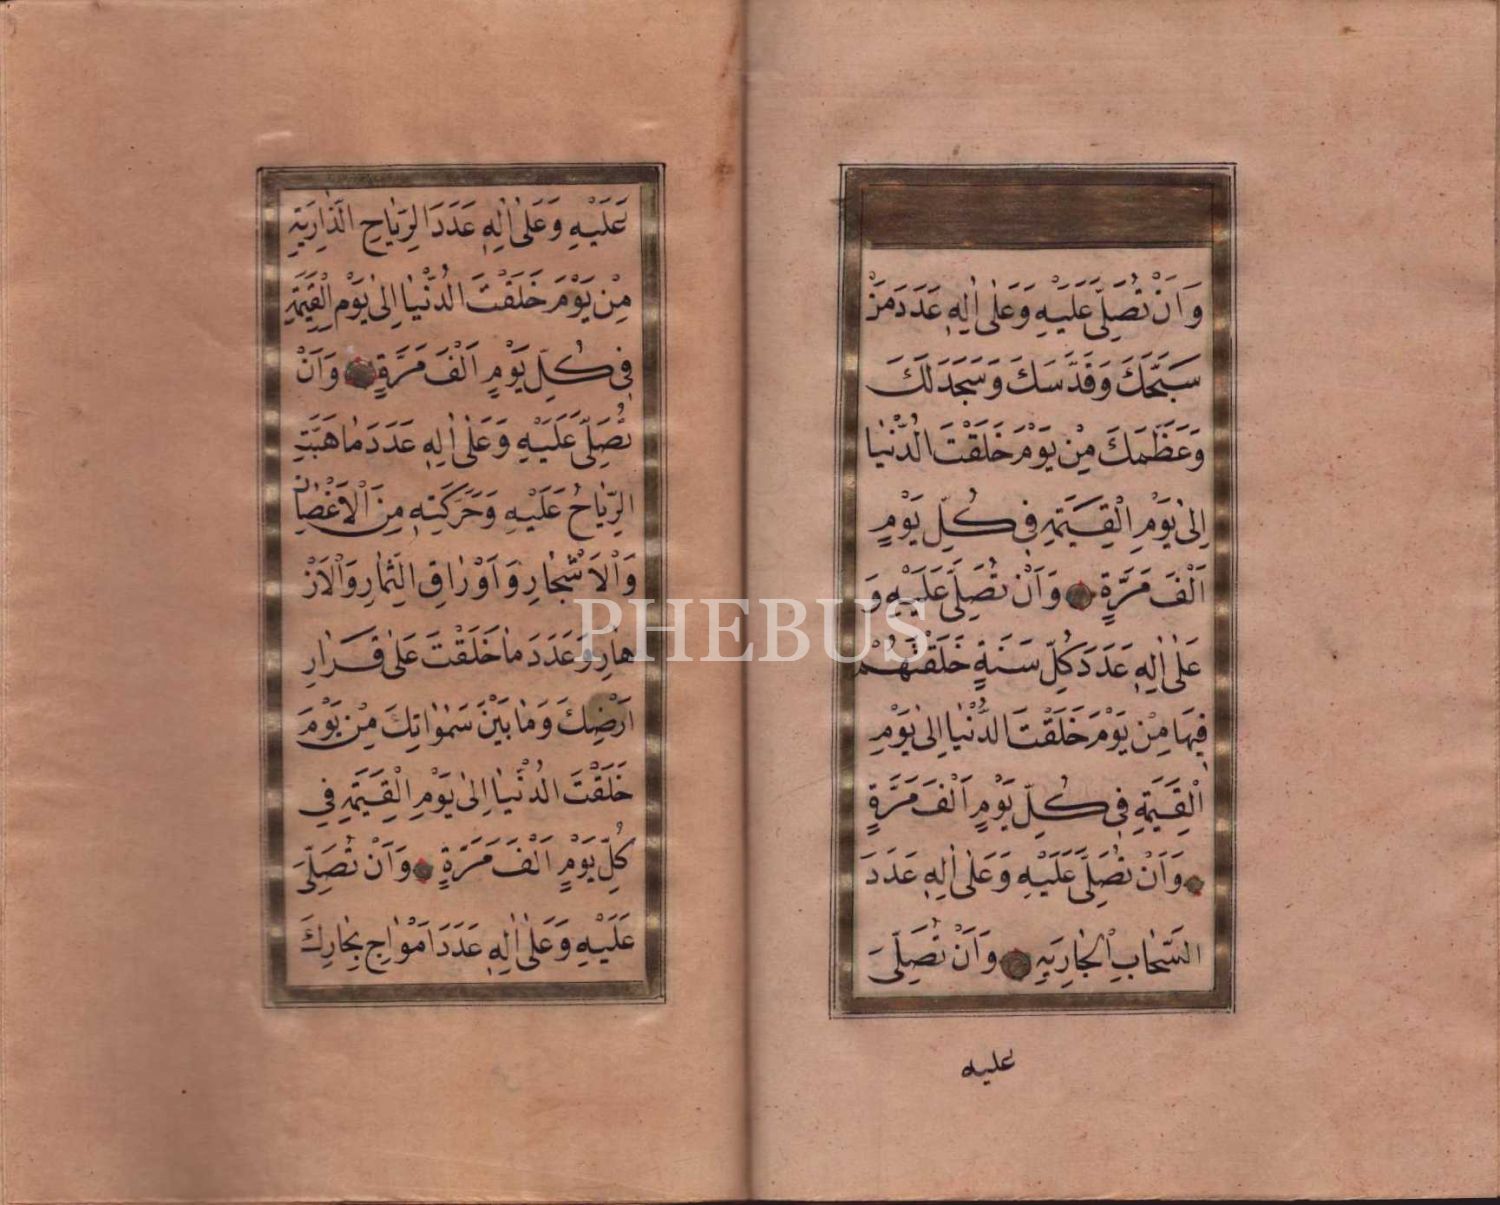 وَاَنْ تُصَلِّىَ عَلَيْهِ وَعَلٰى اٰلِهٖ عَدَدَ مَنْ
سَبَّحَكَ وَقَدَّسَكَ وَسَجَدَ لَكَ
وَعَظَّمَكَ مِنْ يَوْمَ خَلَقْتَ الدُّنْيَا
اِلٰى يَوْمِ الْقِيٰمَةِ فِى كُلِّ يَوْمٍ
اَلْفَ مَرَّةٍ وَاَنْ تُصَلِّىَ عَلَيْهِ وَ
عَلٰى اٰلِهٖ عَدَدَ كُلِّ سَنَةٍ خَلَقْتَهُمْ
فِيهَا مِنْ يَوْمَ خَلَقْتَ الدُّنْيَا اِلٰى يَوْمِ
الْقِيٰمَةِ فِى كُلِّ يَوْمٍ اَلْفَ مَرَّةٍ
وَاَنْ تُصَلِّىَ عَلَيْهِ وَعَلٰى اٰلِهٖ عَدَدَ
السَّحَابِ الْجَارِيَةِ وَاَنْ تُصَلِّىَ
عليه
عَلَيْهِ وَعَلٰى اٰلِهٖ عَدَدَ الرِّيَاحِ الذَّارِيَةِ
مِنْ يَوْمَ خَلَقْتَ الدُّنْيَا اِلٰى يَوْمِ الْقِيٰمَةِ
فِى كُلِّ يَوْمٍ اَلْفَ مَرَّةٍ وَاَنْ
تُصَلِّىَ عَلَيْهِ وَعَلٰى اٰلِهٖ عَدَدَ مَا هَبَّتِ
الرِّيَاحُ عَلَيْهِ وَحَرَّكَتْهُ مِنَ الْاَغْصَانِ
وَالْاَشْجَارِ وَاَوْرَاقِ الثِّمَارِ وَالْاَزْ
هَارِ وَعَدَدَ مَا خَلَقْتَ عَلٰى قَرَارِ
اَرْضِكَ وَمَا بَيْنَ سَمٰوَاتِكَ مِنْ يَوْمَ
خَلَقْتَ الدُّنْيَا اِلٰى يَوْمِ الْقِيٰمَةِ فِى
كُلِّ يَوْمٍ اَلْفَ مَرَّةٍ وَاَنْ تُصَلِّىَ
عَلَيْهِ وَعَلٰى اٰلِهٖ عَدَدَ اَمْوَاجِ بِحَارِكَ
PHEBUS